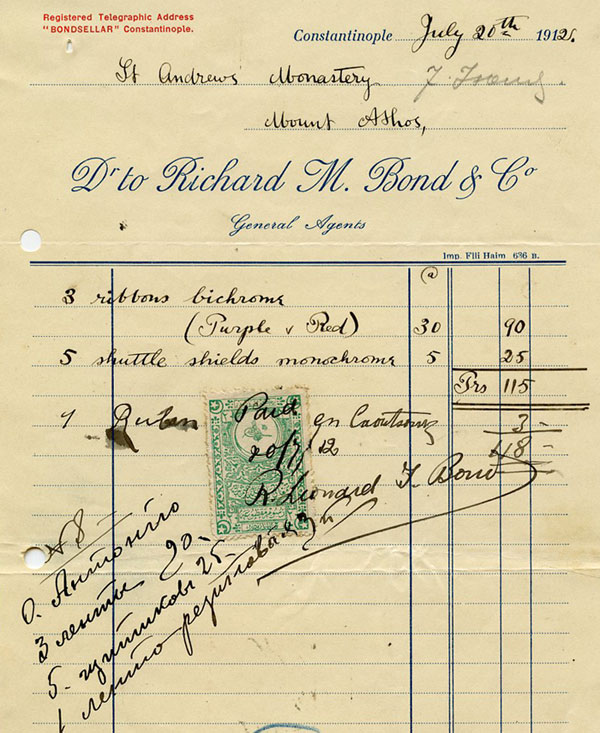 Registered Telegraphic Address
"BONDSELLAR" Constantinople.
Constantinople July 20th 1912.
St Andrews Monastery
Mount Athos,
Dr to Richard M. Bond & Co
General Agents
Imp. Flli Haim 636 B.
@
3 ribbons bichrome
(Purple & Red) 30 90
5 shuttle shields monochrome 5 25
Frs 115
1 Paid 3-
20/7/12 48-
R. Leonard T. Bond
N 8-
О. Антонию
3 ленты 90-
5. щитиков 25-
1 лента